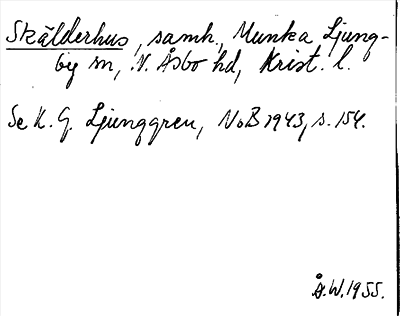 Skälderhus, samh., Munka Ljung-
by sn, N. Åsbo hd, Krist. l.
Se K. G. Ljunggren, NoB 1943, s. 154.
Å.W. 1955.